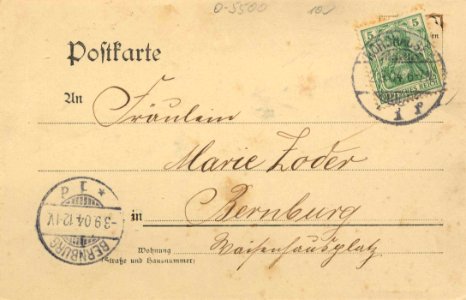 0-5500 10,-
Postkarte
5 5
NORDHAUSEN
An Fräulein
Marie Zoder
in Bernburg
Wohnung Waisenhausplatz
(Straße und Hausnummer)
BERNBURG
3.9.04.12-1V.
* 1